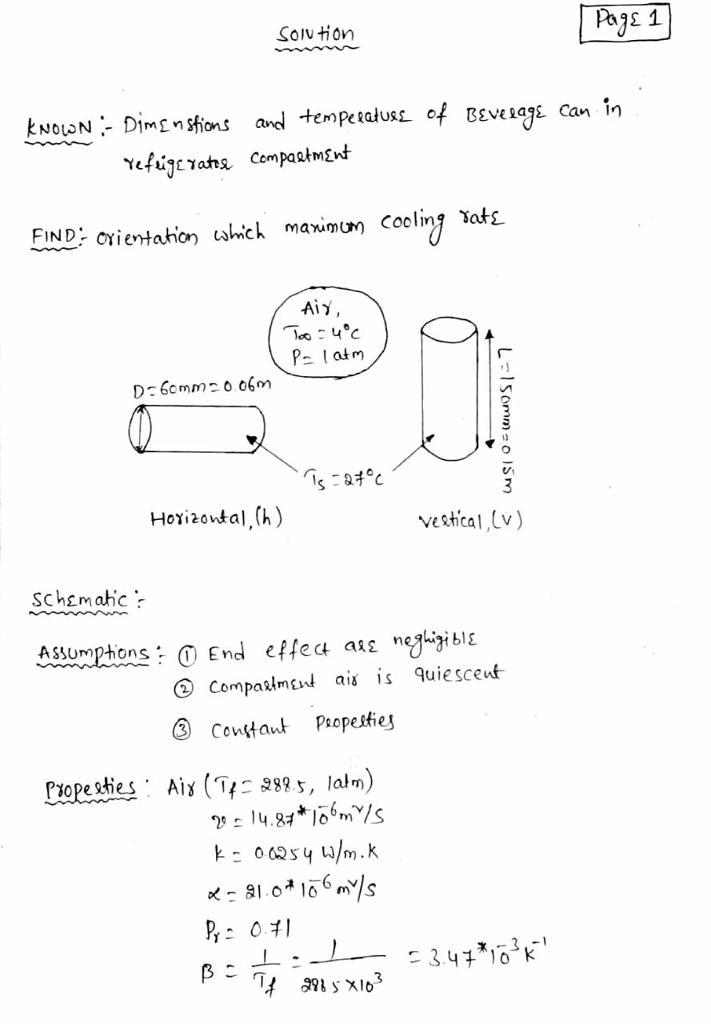 Page 1
Solution
KNOWN :- Dimenstions and temperature of Beverage can in
refrigerator compartment
FIND:- orientation which maximum cooling rate
Air,
T∞ = 4°C
P = 1 atm
D = 60mm = 0.06m
L = 150mm = 0.15m
Ts = 27°C
Horizontal, (h)
vertical, (v)
Schematic :-
Assumptions : ① End effect are neghigible
② compartment air is quiescent
③ constant Properties
Properties : Air (Tf = 288.5, 1atm)
ν = 14.87*10⁻⁶ m²/s
k = 0.0254 W/m.k
α = 21.0*10⁻⁶ m²/s
Pr = 0.71
β = 1/Tf = 1/288.5×10³ = 3.47*10⁻³ K⁻¹